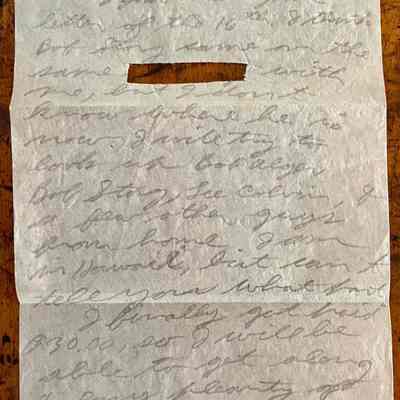 letter of the 16th. I think
Bob Story came on the
same with
me, but I don't
know where he is
now. I will try to
look up Bob Alger
Bob Story, Lee Colvin,
a few other guys
from home. I am
in Hawaii, but can't
tell you what
I finally got paid
$30.00, so I will be
able to get along